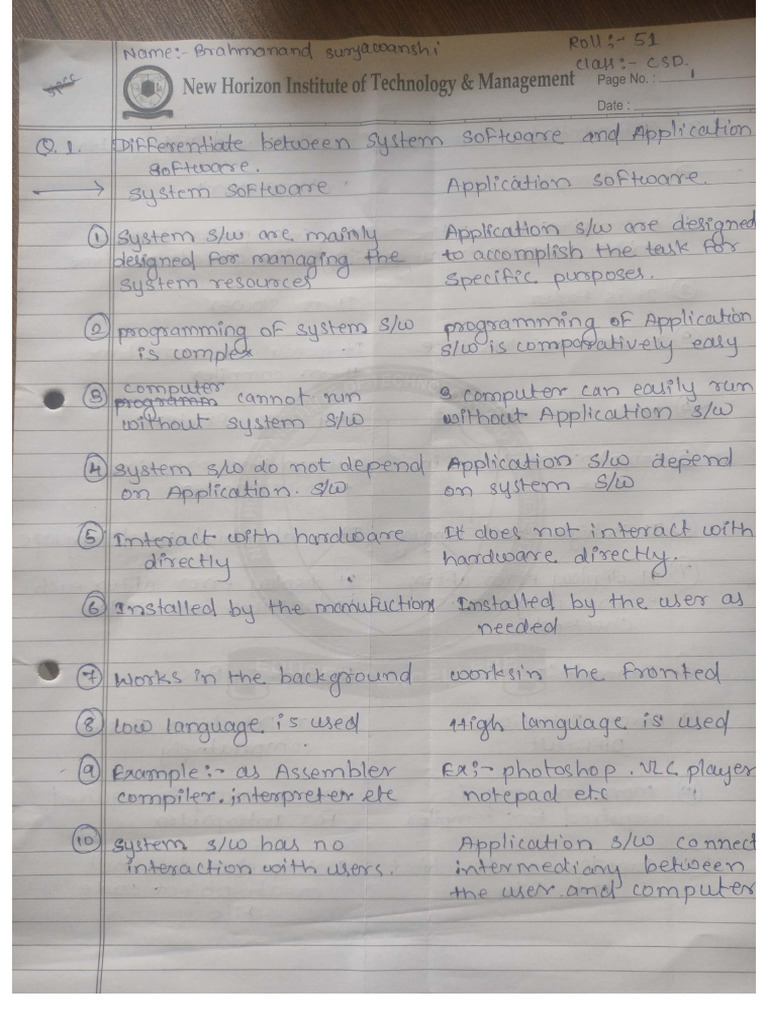 Name:- Brahmanand Suryawanshi
Roll:- 51
SPCC
Class:- CSD.
New Horizon Institute of Technology & Management
Page No. : 1
Date :
Q.1. Differentiate between System Software and Application
Software.
System Software
Application Software.
① System S/W are mainly
designed for managing the
System resources
Application S/W are designed
to accomplish the task for
Specific purposes.
② programming of system S/W
is complex
programming of Application
S/W is comparatively easy
③ computer
programm cannot run
without system S/W
computer can easily run
without Application S/W
④ System S/W do not depend
on Application. S/W
Application S/W depend
on system S/W
⑤ Interact with hardware
directly
It does not interact with
hardware directly.
⑥ Installed by the manufuctions
Installed by the user as
needed
⑦ Works in the background
worksin the fronted
⑧ low language is used
High language is used
⑨ Example:- as Assembler
compiler, interpreter etc
Ex:- photoshop. VLC player
notepad etc
⑩ System S/W has no
interaction with users.
Application S/W connect
intermediany between
the user and computer